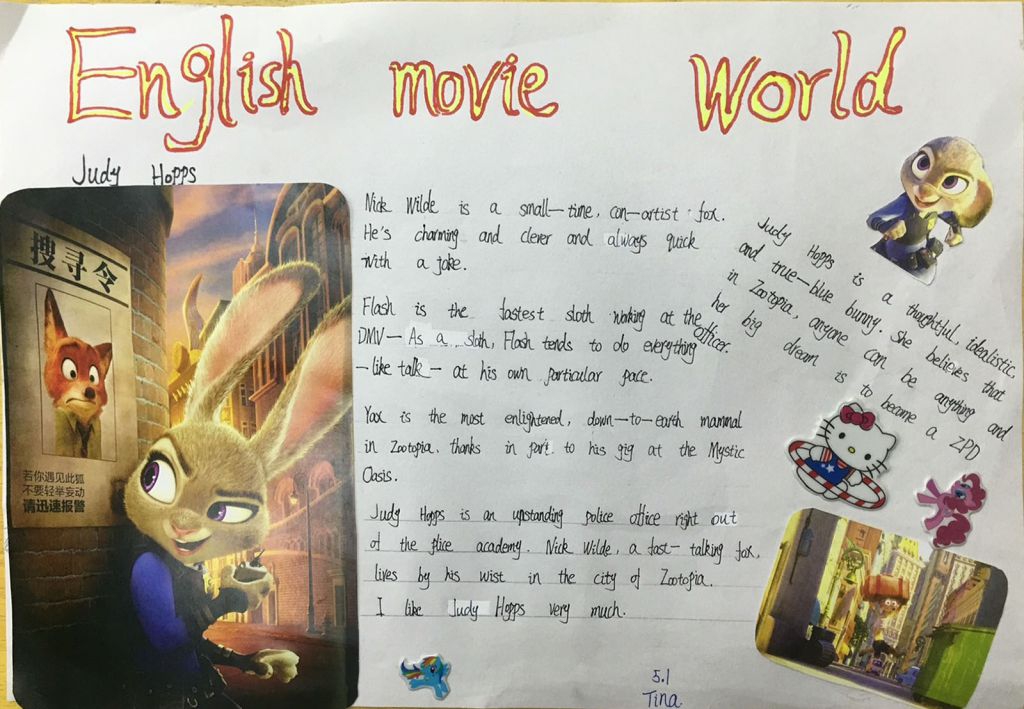 English movie World
Judy Hopps
搜寻令
若你遇见此狐
不要轻举妄动
请迅速报警
Nick Wilde is a small-time, con-artist fox.
He's charming and clever and always quick
with a joke.
Flash is the fastest sloth working at the
DMV- As a sloth, Flash tends to do everything
-like talk- at his own particular pace.
Yax is the most enlightened, down-to-earth mammal
in Zootopia, thanks in part to his gig at the Mystic
Oasis.
Judy Hopps is an upstanding police office right out
of the plice academy. Nick Wilde, a fast-talking fox,
lives by his wist in the city of Zootopia.
I like Judy Hopps very much.
Judy Hopps is a thoughtful, idealistic,
and true-blue bunny. She believes that
in Zootopia, anyone can be anything and
her big dream is to become a ZPD
officer.
5.1
Tina